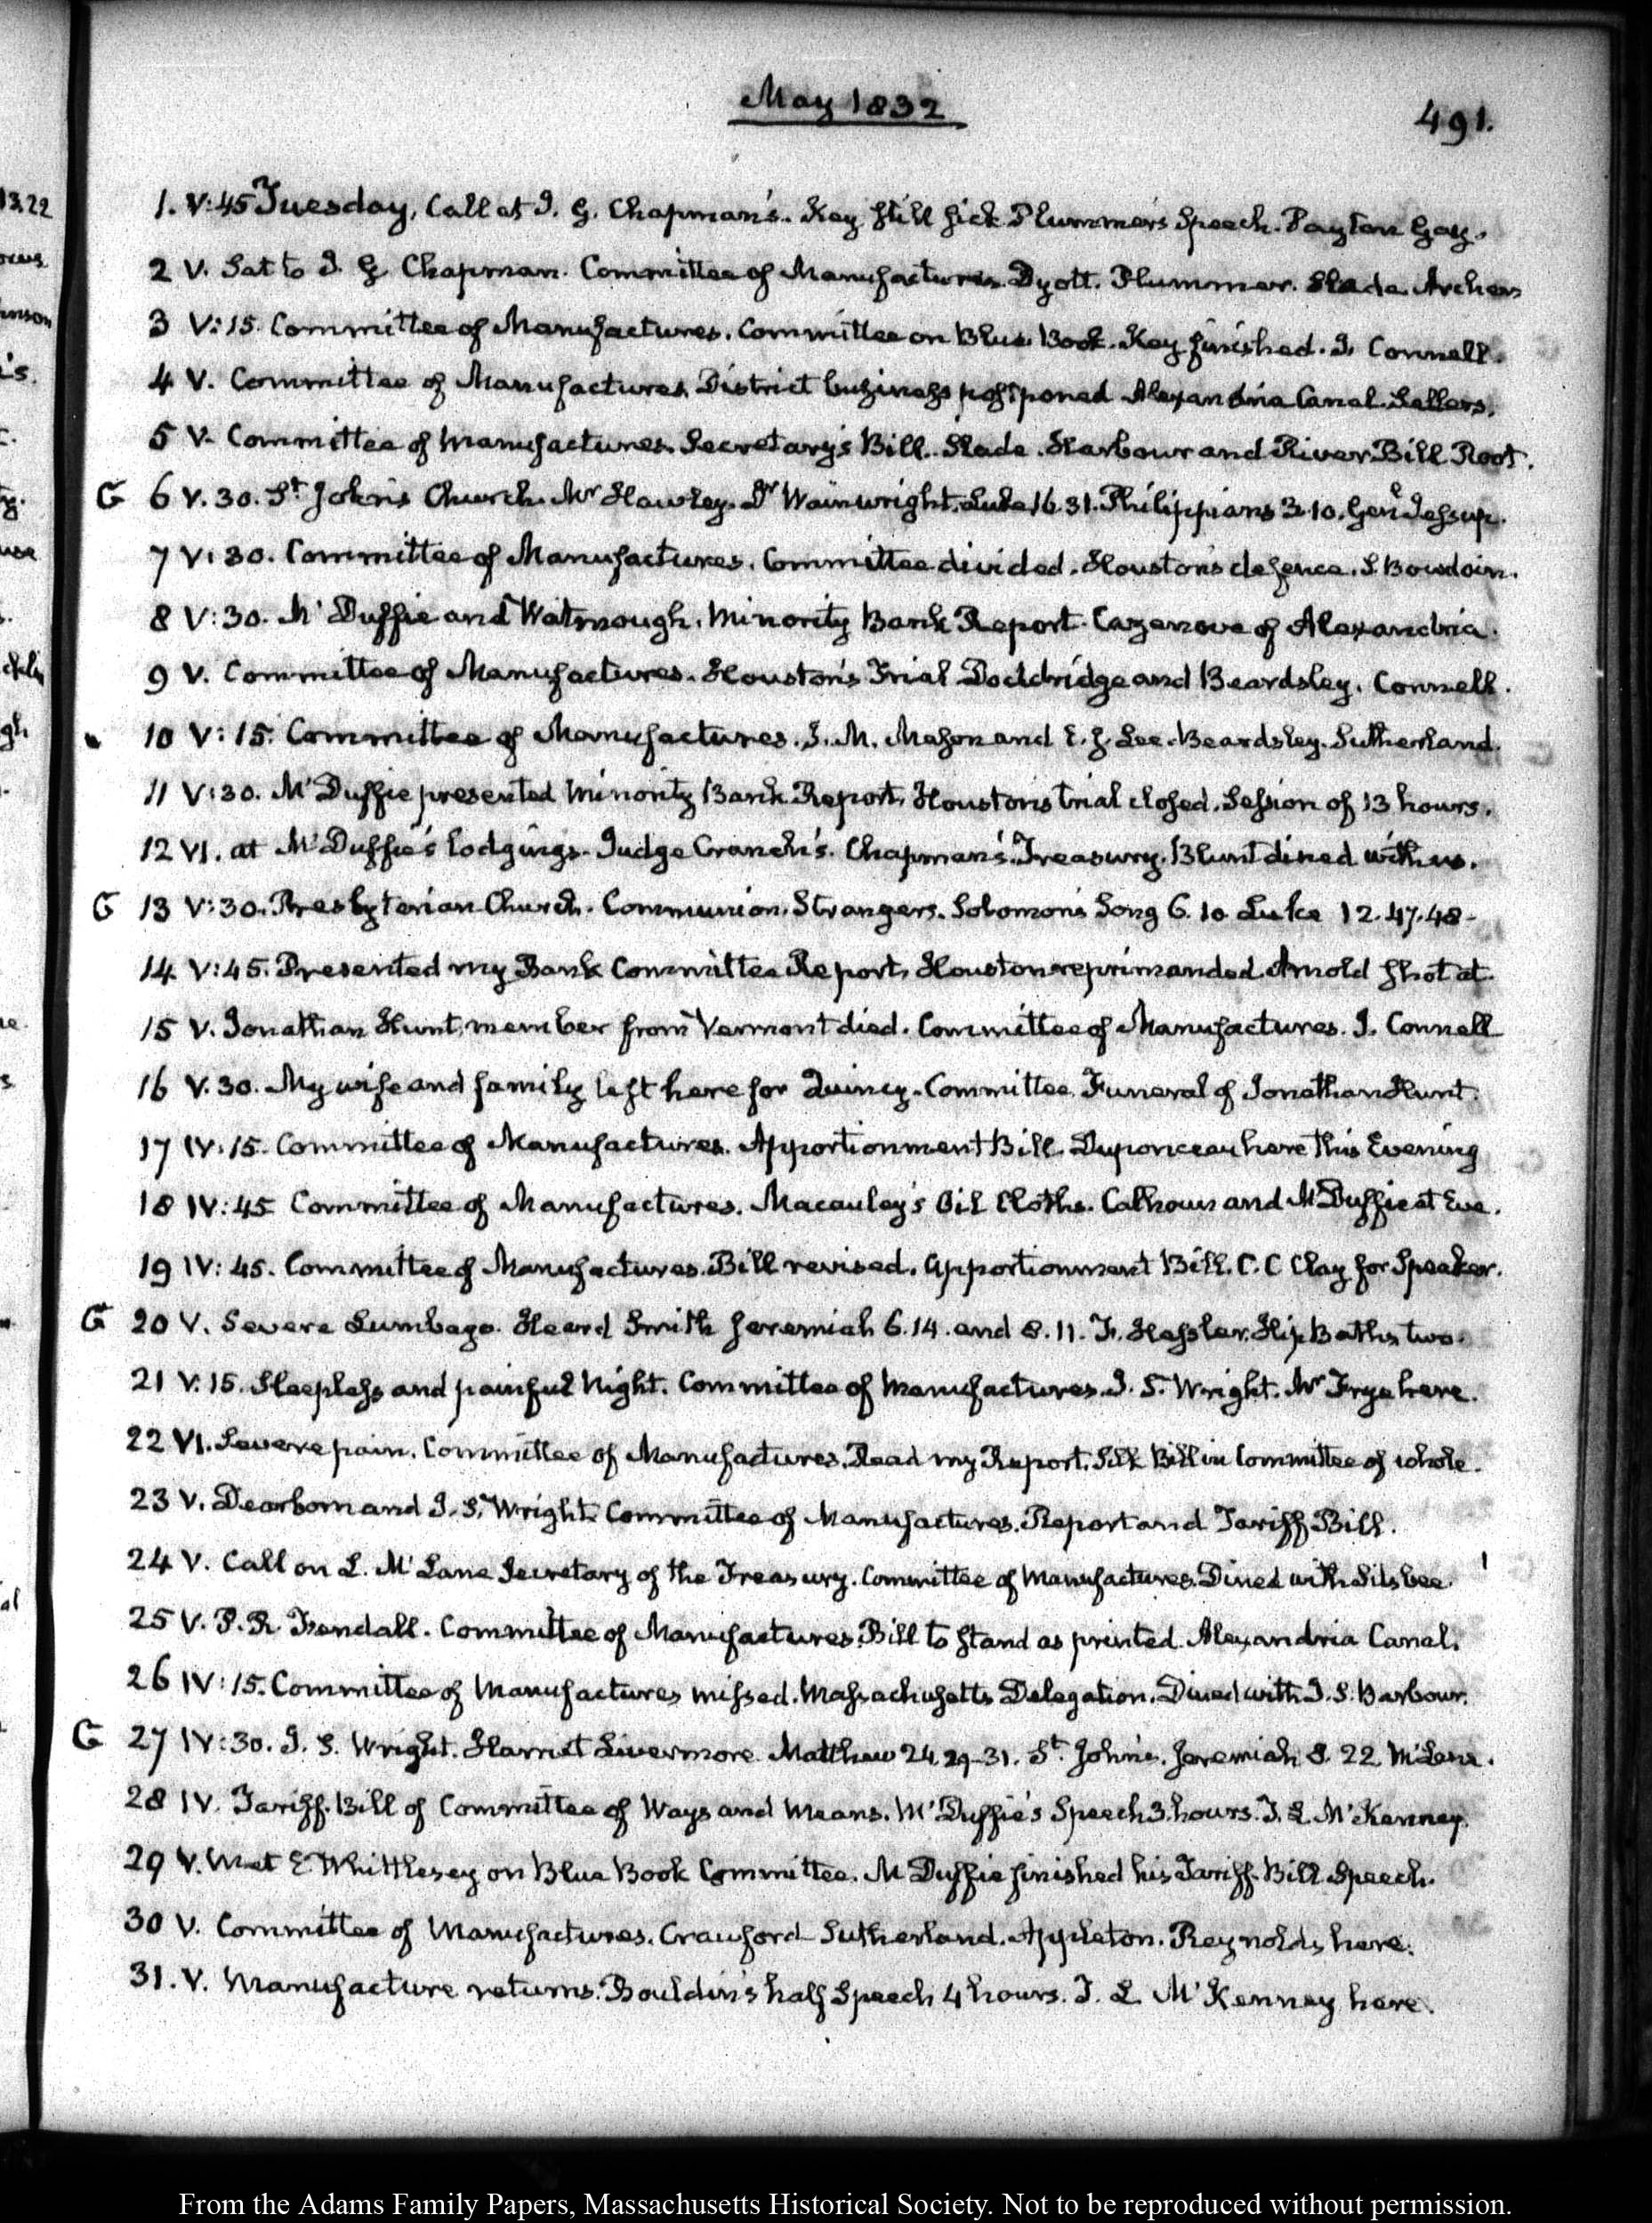 May 1832
491.
1. V:45 Tuesday, Call at J. G. Chapman's. Key still sick Plummer's Speech. Payton Gay.
2 V. Sat to J. G Chapman. Committee of Manufactures. Dyott. Plummer. Slade. Archer
3 V:15. Committee of Manufactures. Committee on Blue Book. Key finished. J. Connell.
4 V. Committee of Manufactures, District business postponed Alexandria Canal. Sellers.
5 V. Committee of Manufactures. Secretary's Bill. Slade. Harbour and River Bill Root.
G 6 V.30. St John's Church. Mr Hawley. Dr Wainwright. Luke 16.31. Philippians 3.10. Genl Jessup.
7 V:30. Committee of Manufactures. Committee divided. Houston's defence. Bowdoin.
8 V:30. McDuffie and Watmough. Minority Bank Report. Cazenove of Alexandria.
9 V. Committee of Manufactures. Houston's Trial Doddridge and Beardsley. Connell.
10 V:15. Committee of Manufactures. J. M. Mason and E. J. Lee. Beardsley. Sutherland.
11 V:30. McDuffie presented Minority Bank Report. Houston's trial closed. Session of 13 hours.
12 VI. at McDuffie's lodgings. Judge Cranch's. Chapman's. Treasury. Blunt dined with us.
G 13 V:30. Presbyterian Church. Communion. Strangers. Solomon's Song 6.10 Luke 12.47.48.
14 V:45. Presented my Bank Committee Report. Houston reprimanded. Arnold shot at.
15 V. Jonathan Hunt, member from Vermont died. Committee of Manufactures. J. Connell
16 V.30. My wife and family left here for Quincy. Committee. Funeral of Jonathan Hunt.
17 IV:15. Committee of Manufactures. Apportionment Bill. Duponceau here this Evening
18 IV:45 Committee of Manufactures. Macauley's Oil Cloths. Calhoun and McDuffie at Eve.
19 IV:45. Committee of Manufactures. Bill revised. Apportionment Bill. C. C Clay for Speaker.
G 20 V. Severe Lumbago. Heard Smith Jeremiah 6.14. and 8.11. F. Hassler. Hip Baths two.
21 V.15. Sleepless and painful Night. Committee of Manufactures. J. S. Wright. Mr Frye here.
22 VI. Severe pain. Committee of Manufactures. Read my Report. Silk Bill in Committee of whole.
23 V. Dearborn and J. S. Wright. Committee of Manufactures. Report and Tariff Bill.
24 V. Call on L. McLane Secretary of the Treasury. Committee of Manufactures. Dined with Silsbee.
25 V. P. R. Fendall. Committee of Manufactures. Bill to stand as printed. Alexandria Canal.
26 IV:15. Committee of Manufactures missed. Massachusetts Delegation. Dined with J. S. Barbour.
G 27 IV:30. J. S. Wright. Harriet Livermore Matthew 24.29-31. St. John's. Jeremiah 8.22 McLane.
28 IV. Tariff Bill of Committee of Ways and Means. McDuffie's Speech 3 hours. T. L. McKenney.
29 V. Met E Whittlesey on Blue Book Committee. McDuffie finished his Tariff Bill Speech.
30 V. Committee of Manufactures. Crawford Sutherland. Appleton. Reynolds here.
31. V. Manufacture returns. Bouldin's half Speech 4 hours. T. L McKenney here.
From the Adams Family Papers, Massachusetts Historical Society. Not to be reproduced without permission.